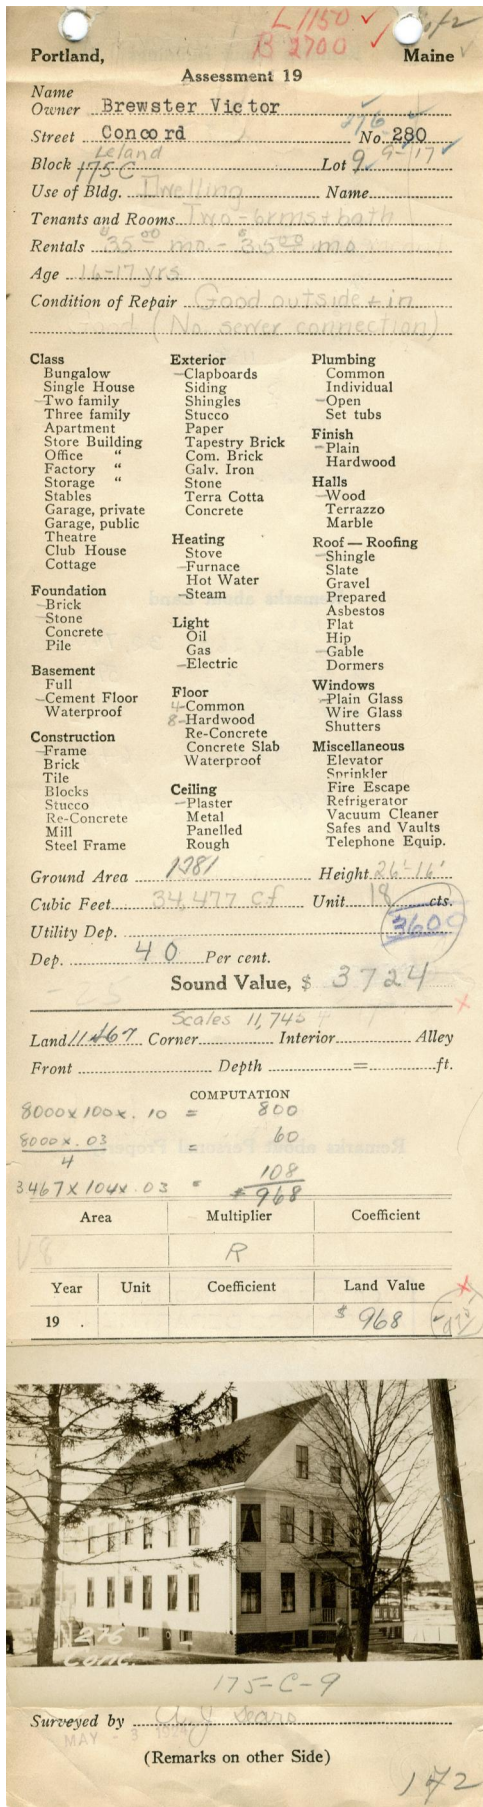 L 1150 ✓
B 2700 ✓
Portland, Maine
Assessment 19
Name
Owner Brewster Victor
276
Street Concord No. 280
Leland 9-17
Block 175 C Lot 9
Use of Bldg. Dwelling Name
Tenants and Rooms Two - 6rms + bath
Rentals $35.00 mo - $35.00 mo
Age 16-17 yrs
Condition of Repair Good outside + in
(No sewer connection)
Class
Bungalow
Single House
Two family
Three family
Apartment
Store Building
Office "
Factory "
Storage "
Stables
Garage, private
Garage, public
Theatre
Club House
Cottage
Foundation
Brick
Stone
Concrete
Pile
Basement
Full
Cement Floor
Waterproof
Construction
Frame
Brick
Tile
Blocks
Stucco
Re-Concrete
Mill
Steel Frame
Exterior
Clapboards
Siding
Shingles
Stucco
Paper
Tapestry Brick
Com. Brick
Galv. Iron
Stone
Terra Cotta
Concrete
Heating
Stove
Furnace
Hot Water
Steam
Light
Oil
Gas
Electric
Floor
4-Common
8-Hardwood
Re-Concrete
Concrete Slab
Waterproof
Ceiling
Plaster
Metal
Panelled
Rough
Plumbing
Common
Individual
Open
Set tubs
Finish
Plain
Hardwood
Halls
Wood
Terrazzo
Marble
Roof — Roofing
Shingle
Slate
Gravel
Prepared
Asbestos
Flat
Hip
Gable
Dormers
Windows
Plain Glass
Wire Glass
Shutters
Miscellaneous
Elevator
Sprinkler
Fire Escape
Refrigerator
Vacuum Cleaner
Safes and Vaults
Telephone Equip.
Ground Area 1381 Height 26'-16'
Cubic Feet 34,477 cf Unit 18 cts.
Utility Dep. 3600
Dep. 40 Per cent.
Sound Value, $ 3724
Scales 11,745
Land 11467 Corner Interior Alley
Front Depth = ft.
COMPUTATION
8000 x 100 x .10 = 800
8000 x .03 = 60
4
3467 x 104 x .03 = 108
$968
Area Multiplier Coefficient
R
Year Unit Coefficient Land Value
19 . $ 968
N 276
Conc.
175-C-9
Surveyed by A J Sears
MAY - 3
(Remarks on other Side)
172